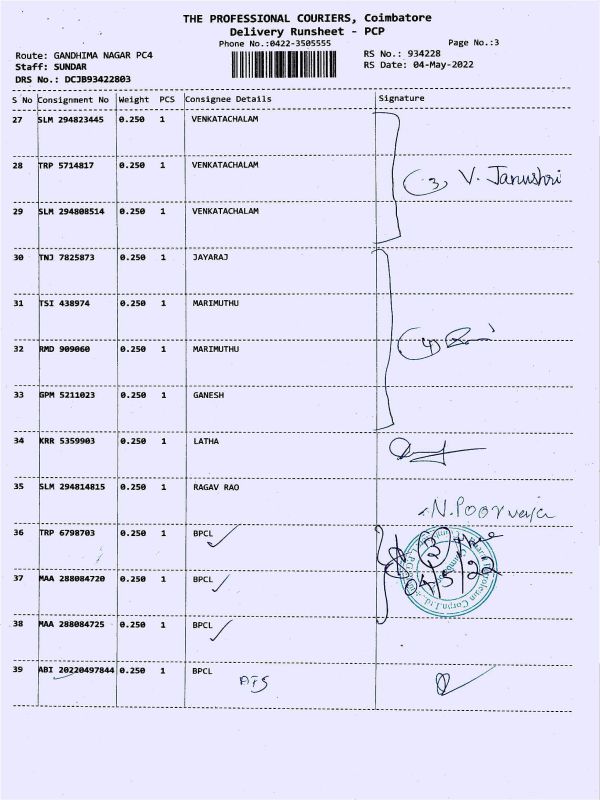 THE PROFESSIONAL COURIERS, Coimbatore
Delivery Runsheet - PCP
Phone No.:0422-3505555 Page No.:3
Route: GANDHIMA NAGAR PC4 RS No.: 934228
Staff: SUNDAR RS Date: 04-May-2022
DRS No.: DCJB93422803
S No Consignment No Weight PCS Consignee Details Signature
27 SLM 294823445 0.250 1 VENKATACHALAM
28 TRP 5714817 0.250 1 VENKATACHALAM
(3) V. Janushri
29 SLM 294808514 0.250 1 VENKATACHALAM
30 TNJ 7825873 0.250 1 JAYARAJ
31 TSI 438974 0.250 1 MARIMUTHU
32 RMD 909060 0.250 1 MARIMUTHU
(4)
33 GPM 5211023 0.250 1 GANESH
34 KRR 5359903 0.250 1 LATHA
35 SLM 294814815 0.250 1 RAGAV RAO
N. Poorvaja
36 TRP 6798703 0.250 1 BPCL
37 MAA 288084720 0.250 1 BPCL
04/5/22
38 MAA 288084725 0.250 1 BPCL
39 ABI 20220497844 0.250 1 BPCL
AFS